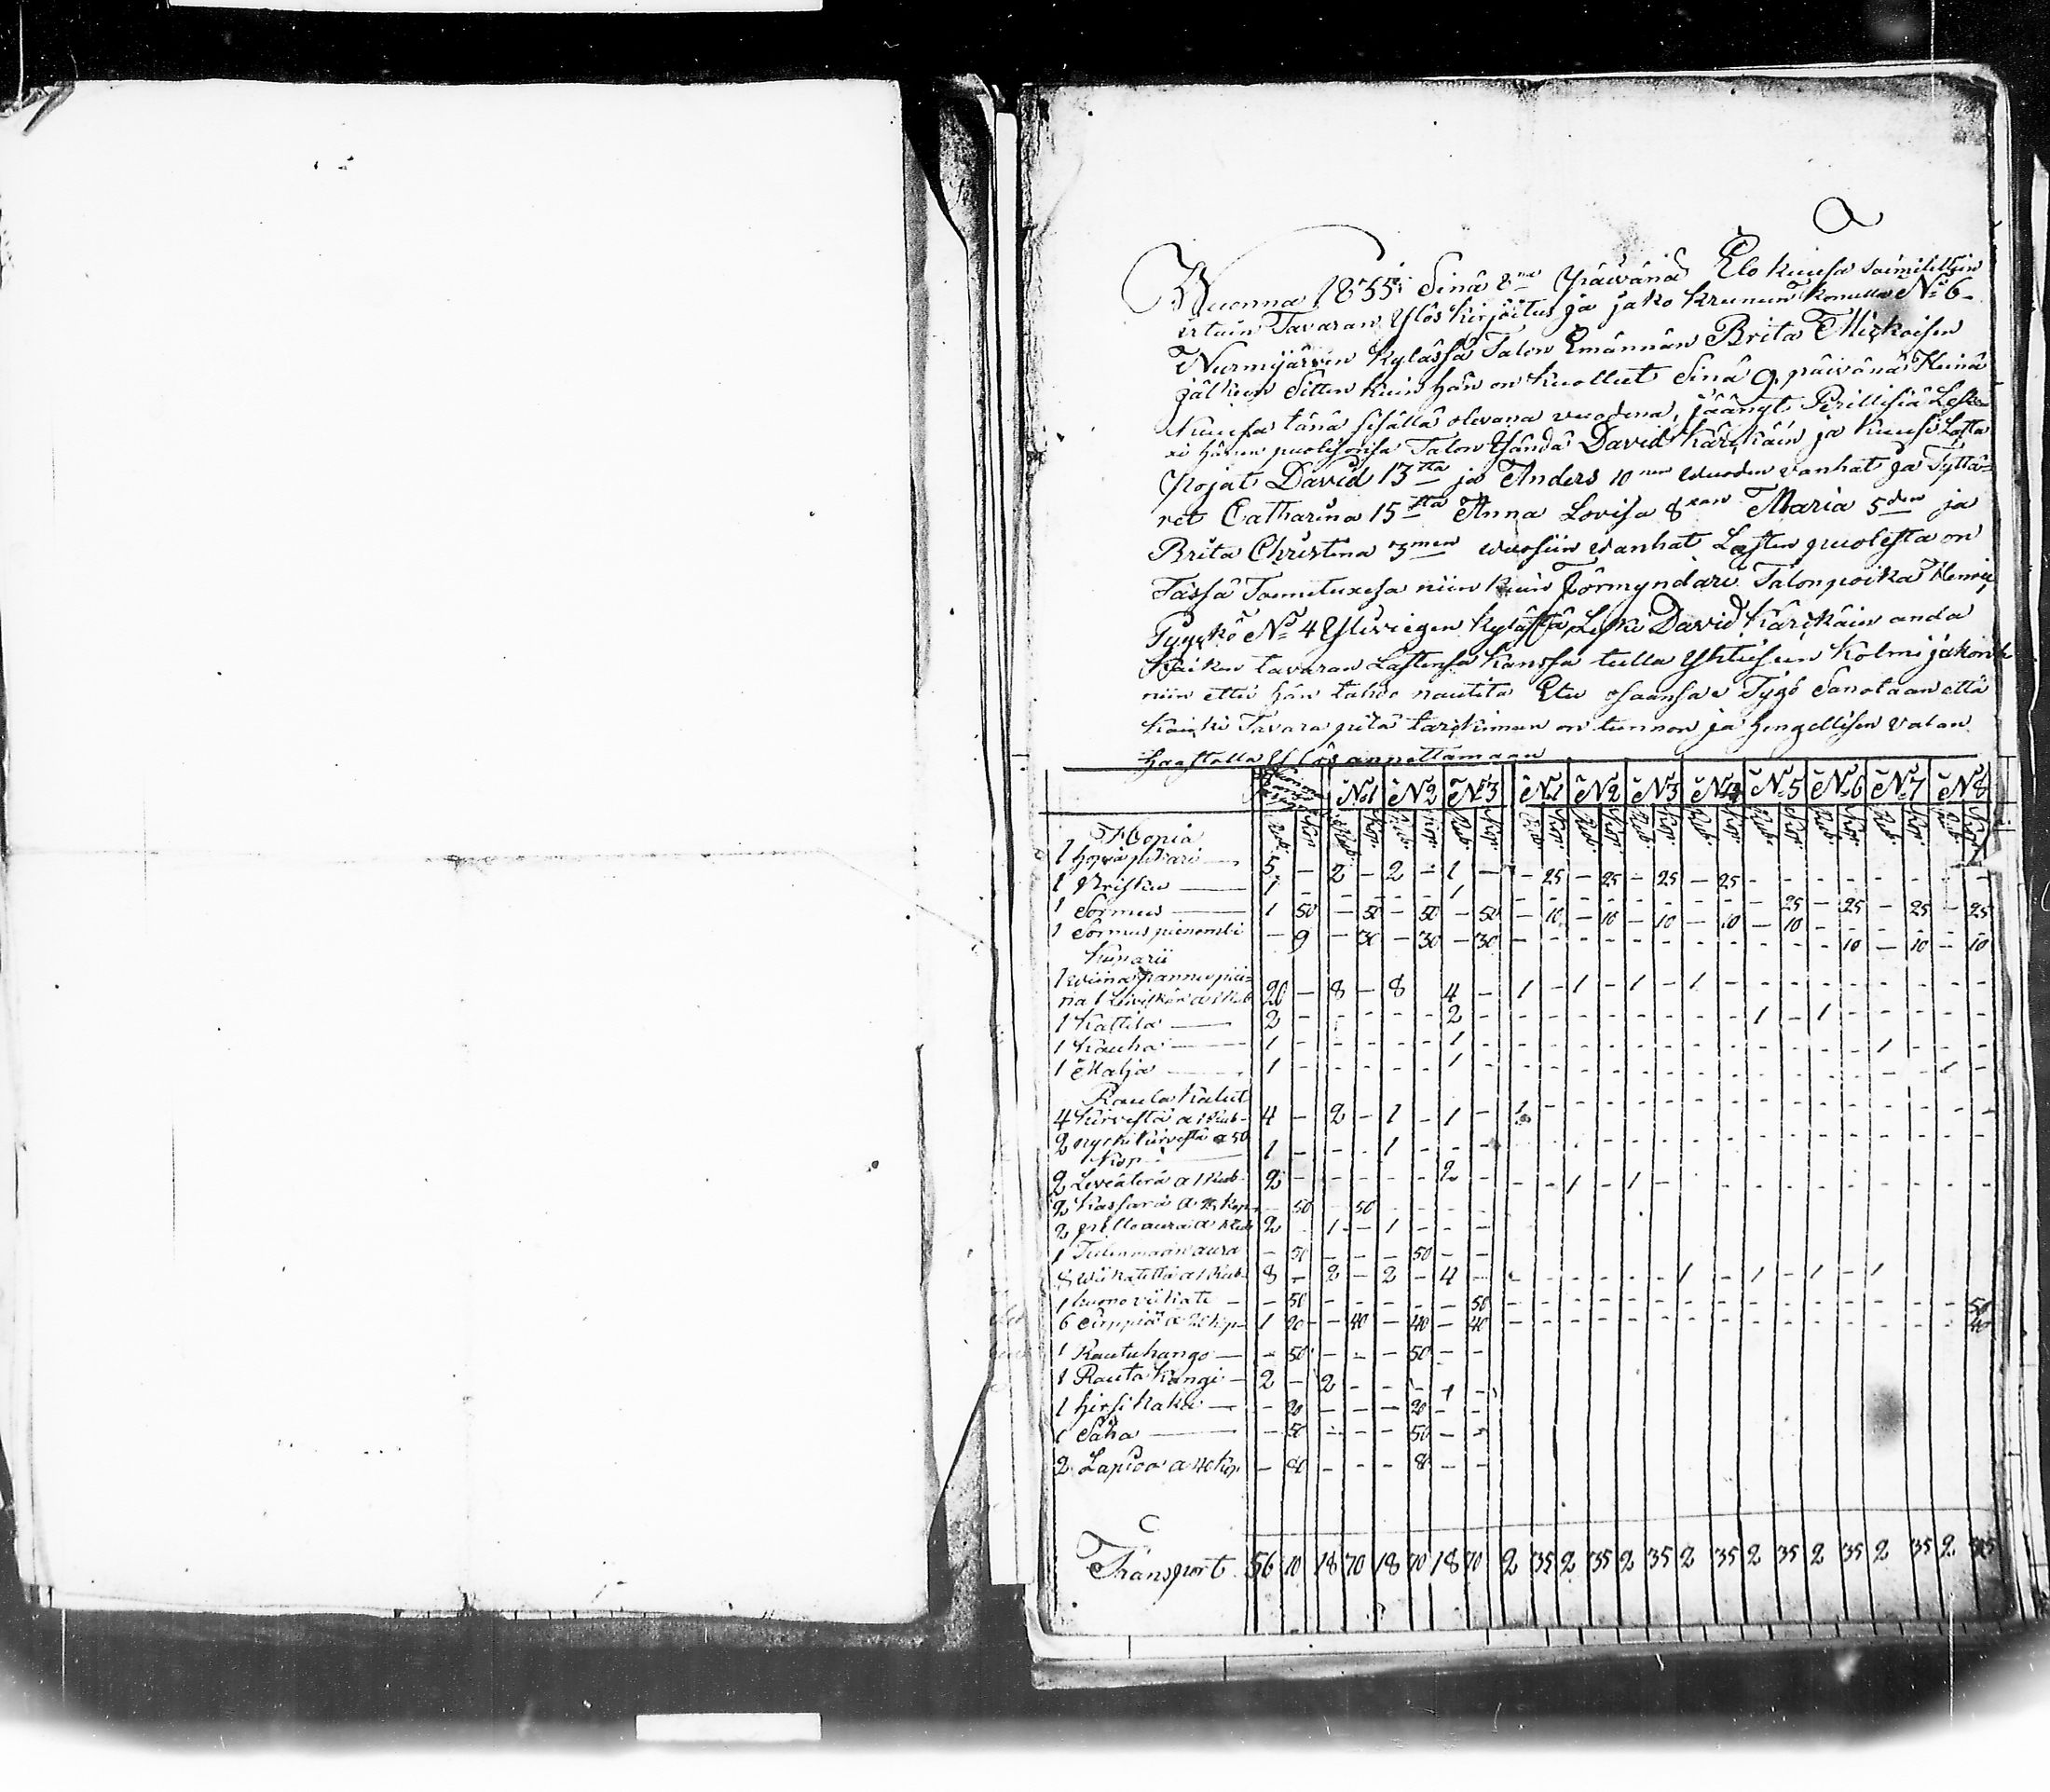 Wuonna 1835 Sinä 8na Päivänä Elo kuusa toimitettin
irtain Tavaran Ylös kirjoitus ja jako krunun Tomulla No 6
Nurmijärven Kylässä Talon Emännän Brita Mickoisen
jälkeen Sitten kuin hän on kuollut Sinä 9 päivänä Heinä
Kuusa tänä sisällä olevana vuodena, jäänyt Perillisiä Leske-
xi hänen puolisonsa Talon Isändä David Kärckäin ja kuusi Lasta
Pojat David 13tta ja Anders 10nen wuoden vanhat ja Tyttä-
ret Catharina 15tta Anna Lovisa 8xan Maria 5den ja
Brita Christina 3men wuosiin vanhat Lasten puolesta on
Tässä Toimituxesa niin kuin Förmyndari Talonpoika Henric
No 4 Yliviegen kylästä, Leski David Kärckäin anda
Kaiken tavaran Lastensa kanssa tulla Yhtiseen Kolmijakoin
niin että hän tahto nautita Etu osaansa Tygö Sanotaan että
kaicki Tavara pitä tarckimman on tunnon ja hengellisen valan
haastolla Ylös annettamaan
No 1 No 2 No 3 No 1 No 2 No 3 No 4 No 5 No 6 No 7 No 8
Rub Kop Rub Kop Rub Kop Rub Kop Rub Kop Rub Kop Rub Kop Rub Kop Rub Kop Rub Kop Rub Kop Rub Kop
Hopia
1 hopia pikari 5 — 2 — 2 — 1 — — 25 — 25 — 25 — 25
1 Risku 1 — — — — — 1 — 25 — 25 — 25 — 25
1 Sormus 1 50 — 50 — 50 — 50 — 10 — 10 — 10 — 10 — 10
1 Sormus pienembi — 9 — 30 — 30 — 30 10 — 10 — 10
Kuparii
1 wiina pannu
20 — 8 — 8 4 — 1 — 1 — 1 — 1
1 Kattila 2 — 2 — 1 — 1
1 Kauha 1 — 1 — 1
1 Malja 1 — 1 — 1
Rauta Kalut
4 kirvestä a 1 Rub 4 — 2 — 1 — 1 — 1
2 kirvestä a 50
Kop 1 — 1
2 Leviäterä a 1 Rub 2 — 2 — 1 — 1
2 Kassara a 25 Kop — 50 — 50
2 aura a 1 Rub 2 — 1 — 1
1 aura — 50 — 50
8 wiikatetta a 1 Rub 8 — 2 — 2 — 4 — 1 — 1 — 1 — 1
1 huono viikate — 50 — 50 50
6 Sirppiä a 20 Kop 1 20 — 40 — 40 — 40 40
1 Rautuhango — 50 — 50
1 Rauta Kangi 2 — 2
1 hirsi haka — 20 — 20
1 Saha — 50 — 50
2 Lapioo a 40 Kop — 80 — 80
Transport 56 10 18 70 18 70 18 70 2 35 2 35 2 35 2 35 2 35 2 35 2 35 2 35